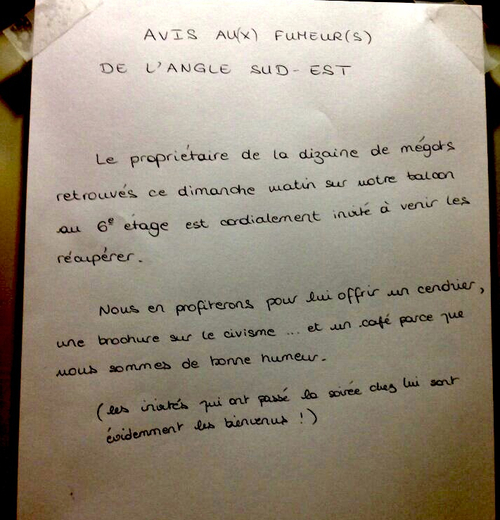 AVIS AU(X) FUMEUR(S)
DE L'ANGLE SUD-EST
Le propriétaire de la dizaine de mégots
retrouvés ce dimanche matin sur notre balcon
au 6e étage est cordialement invité à venir les
récupérer.
Nous en profiterons pour lui offrir un cendrier,
une brochure sur le civisme ... et un café parce que
nous sommes de bonne humeur.
(les invités qui ont passé la soirée chez lui sont
évidemment les bienvenus !)